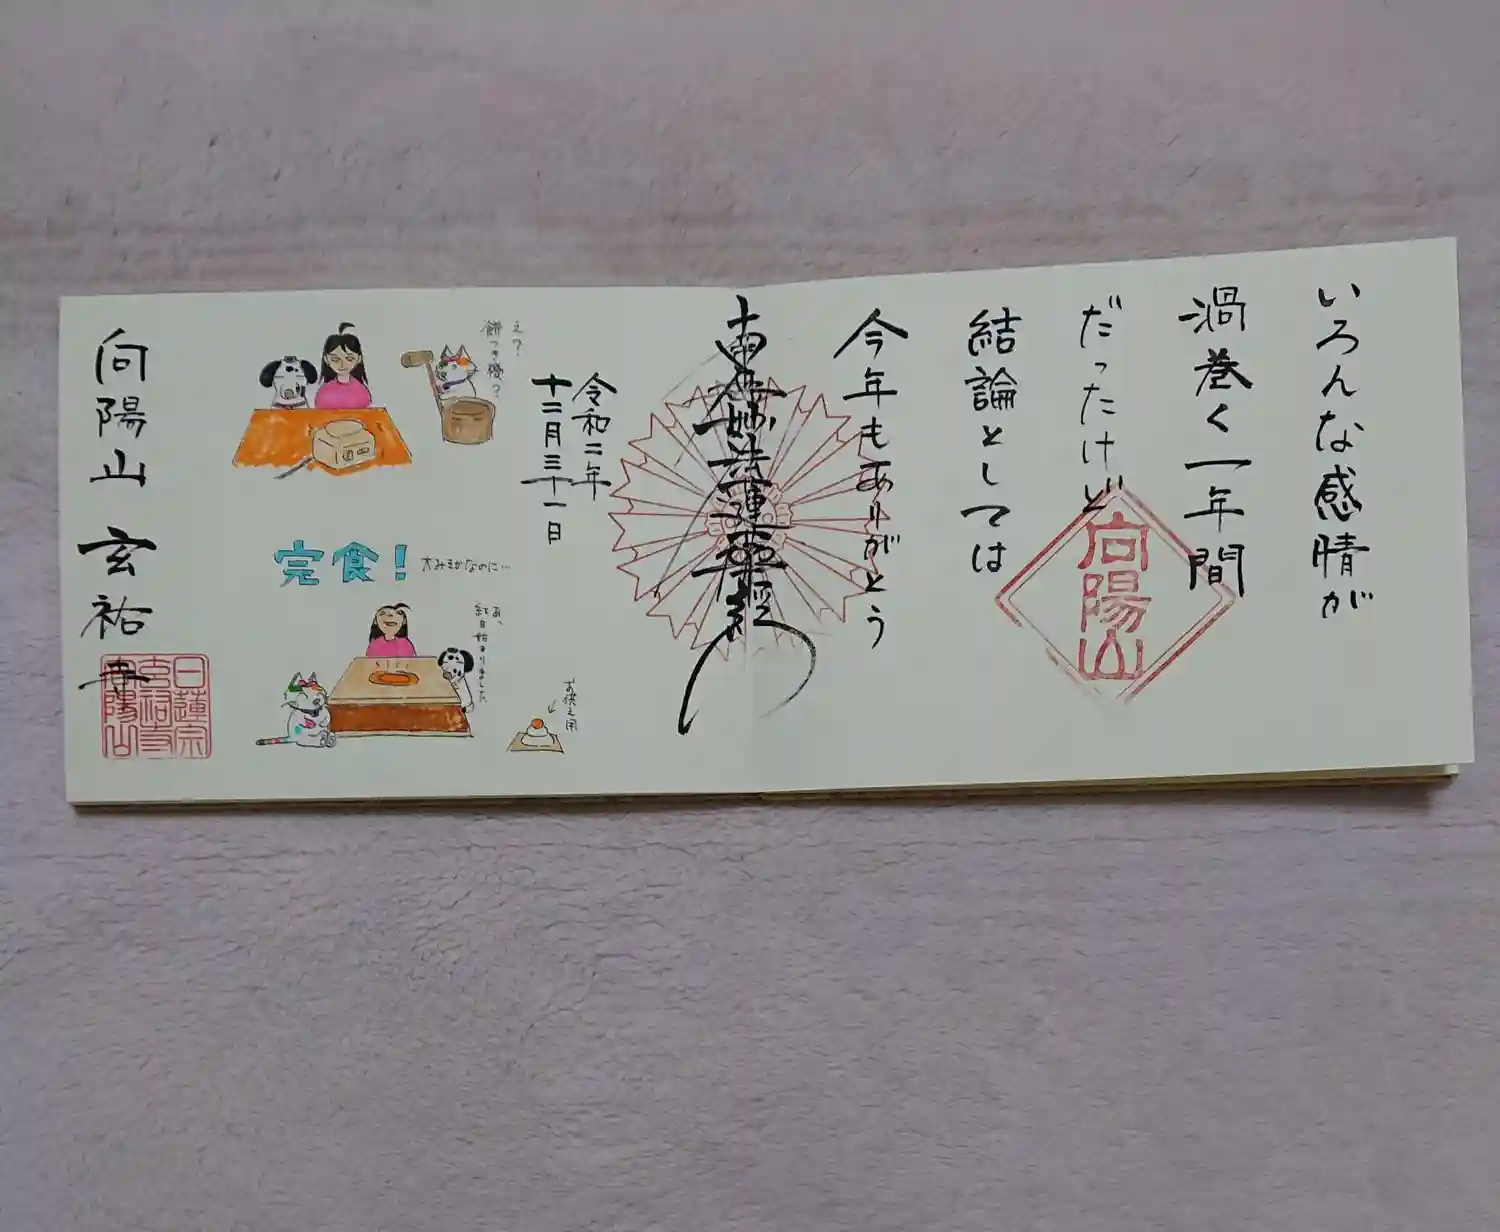 いろんな感情が
渦巻く一年間
だったけど
結論としては
今年もありがとう
向陽山
南無妙法蓮華経
令和二年
十二月三十一日
え?
餅つき機?
完食!
大みそかなのに…
お供え用
向陽山 玄祐寺
日蓮宗
玄祐寺
向陽山